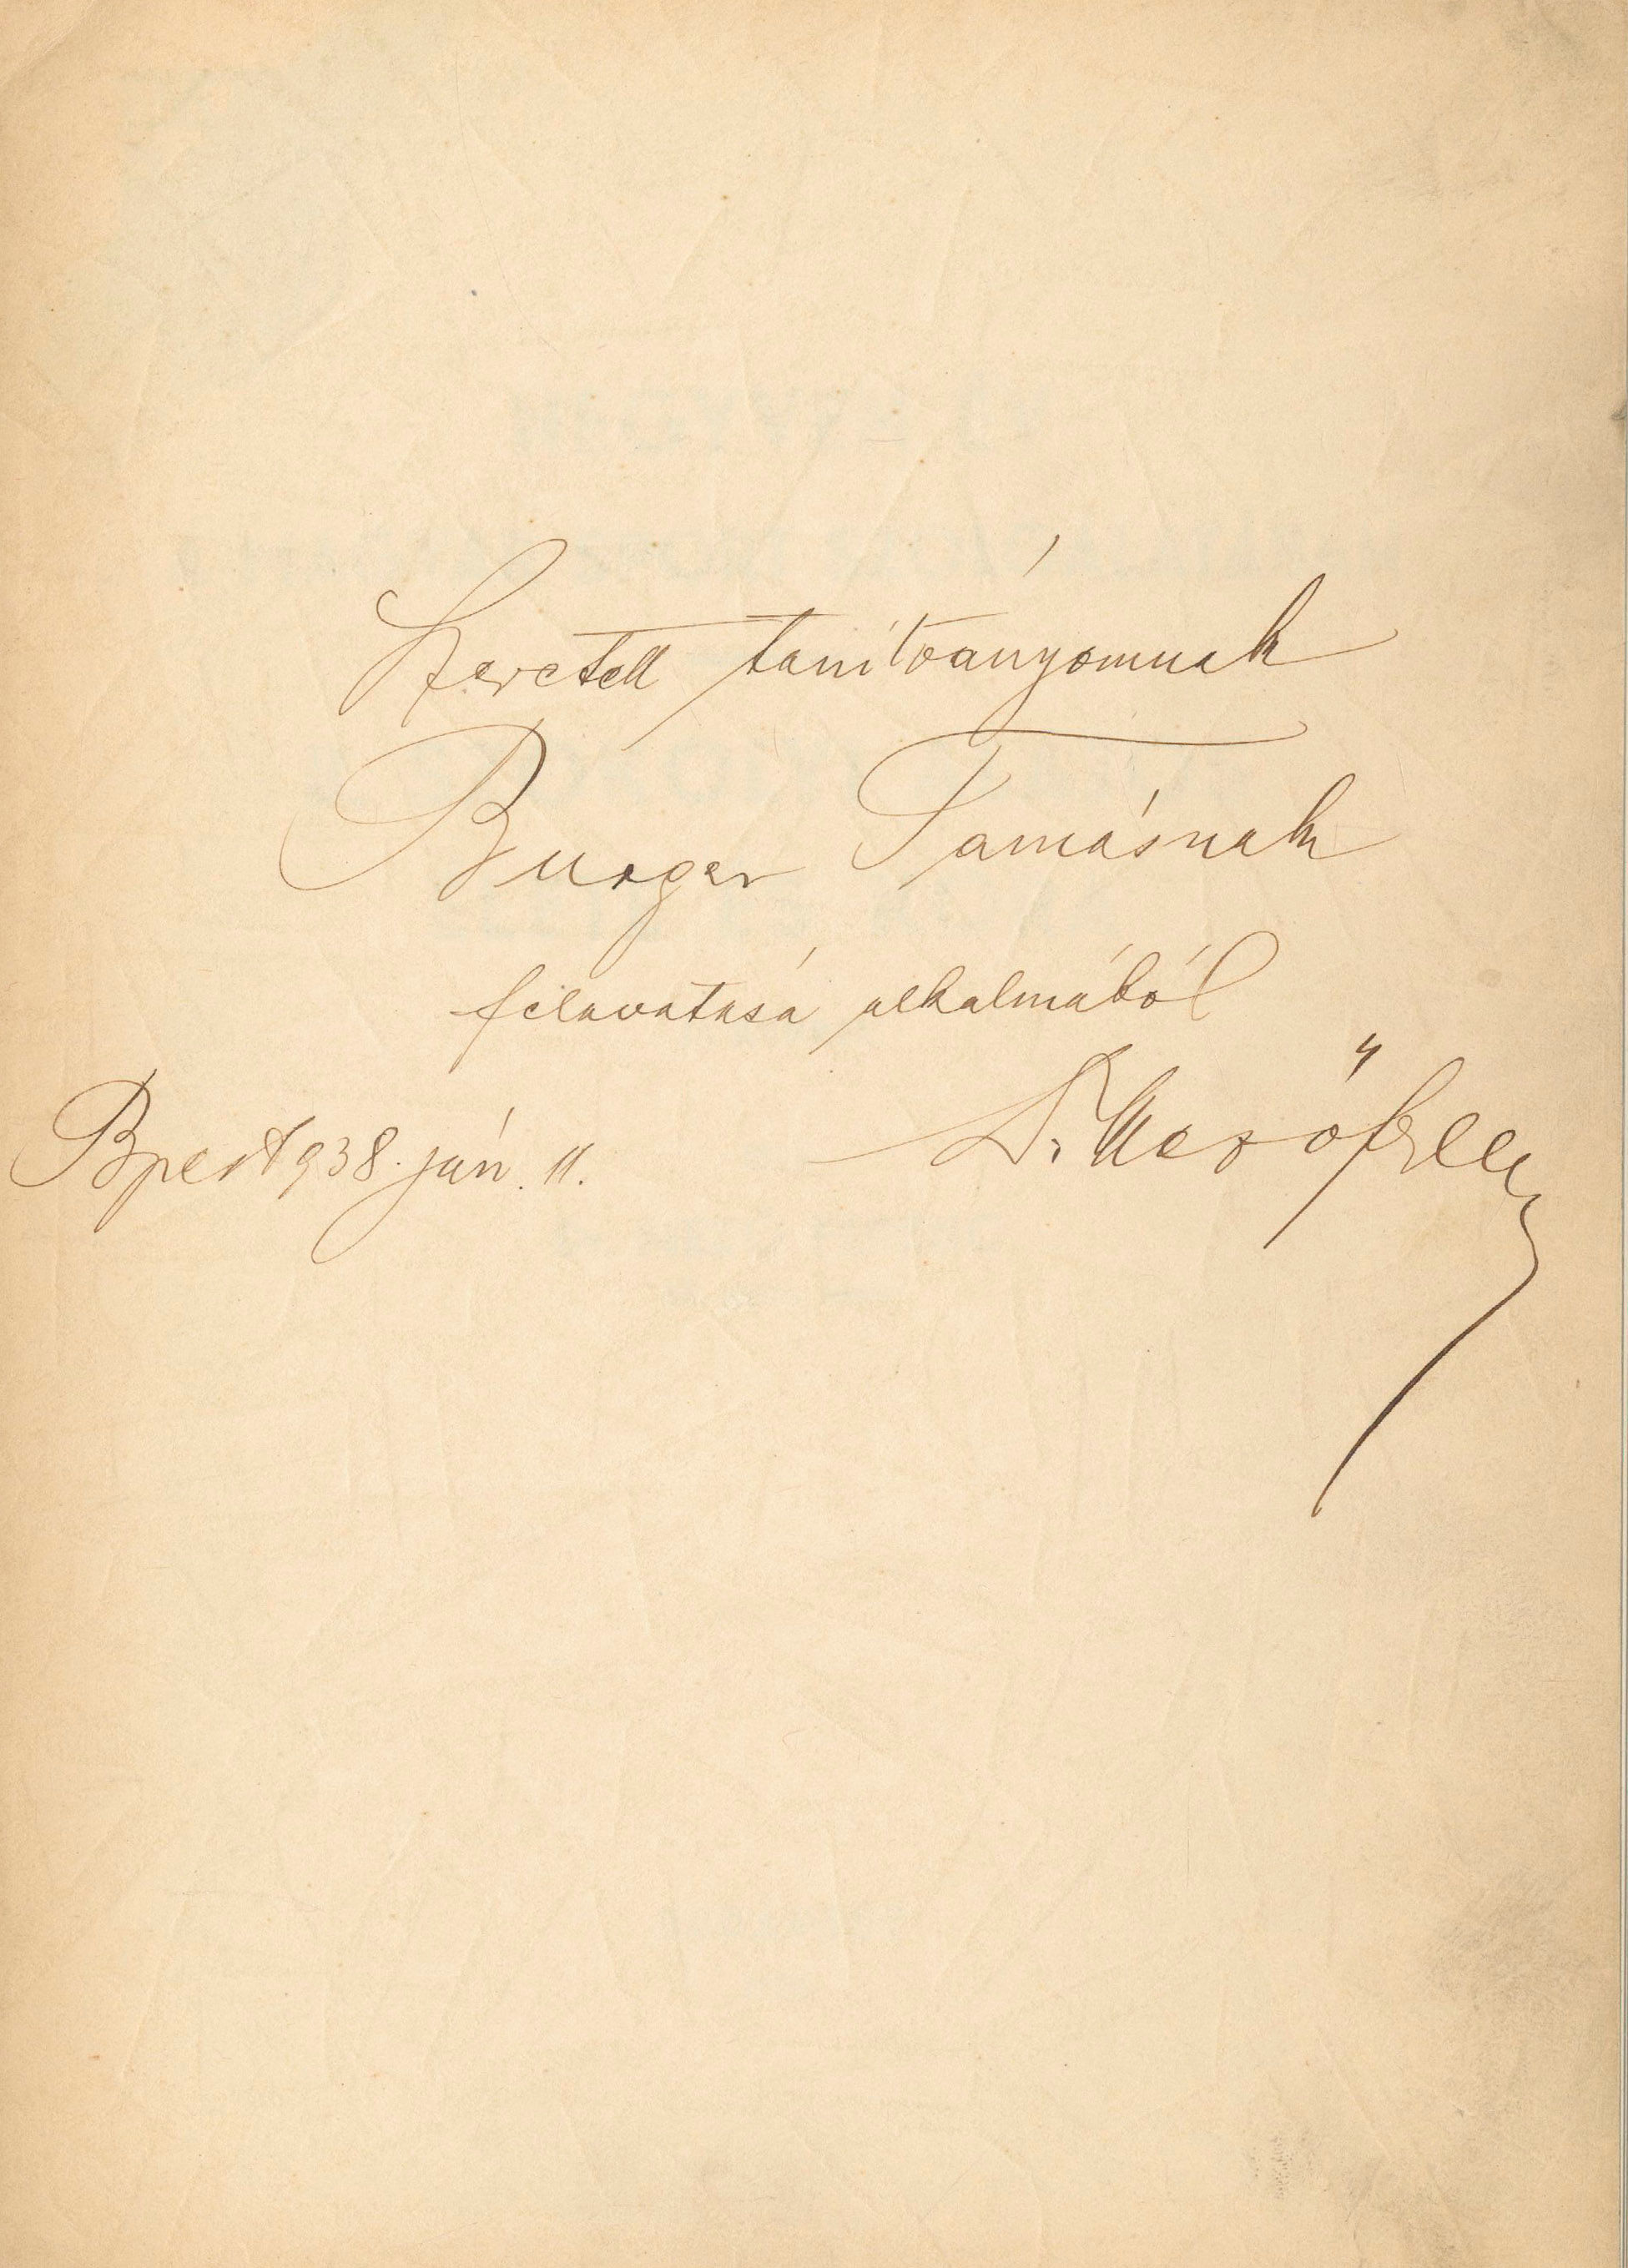 Szeretett tanítványomnak
Burger Tamásnak
felavatása alkalmából
Bpest 938. ján. 11. Dr. Mező Ferenc